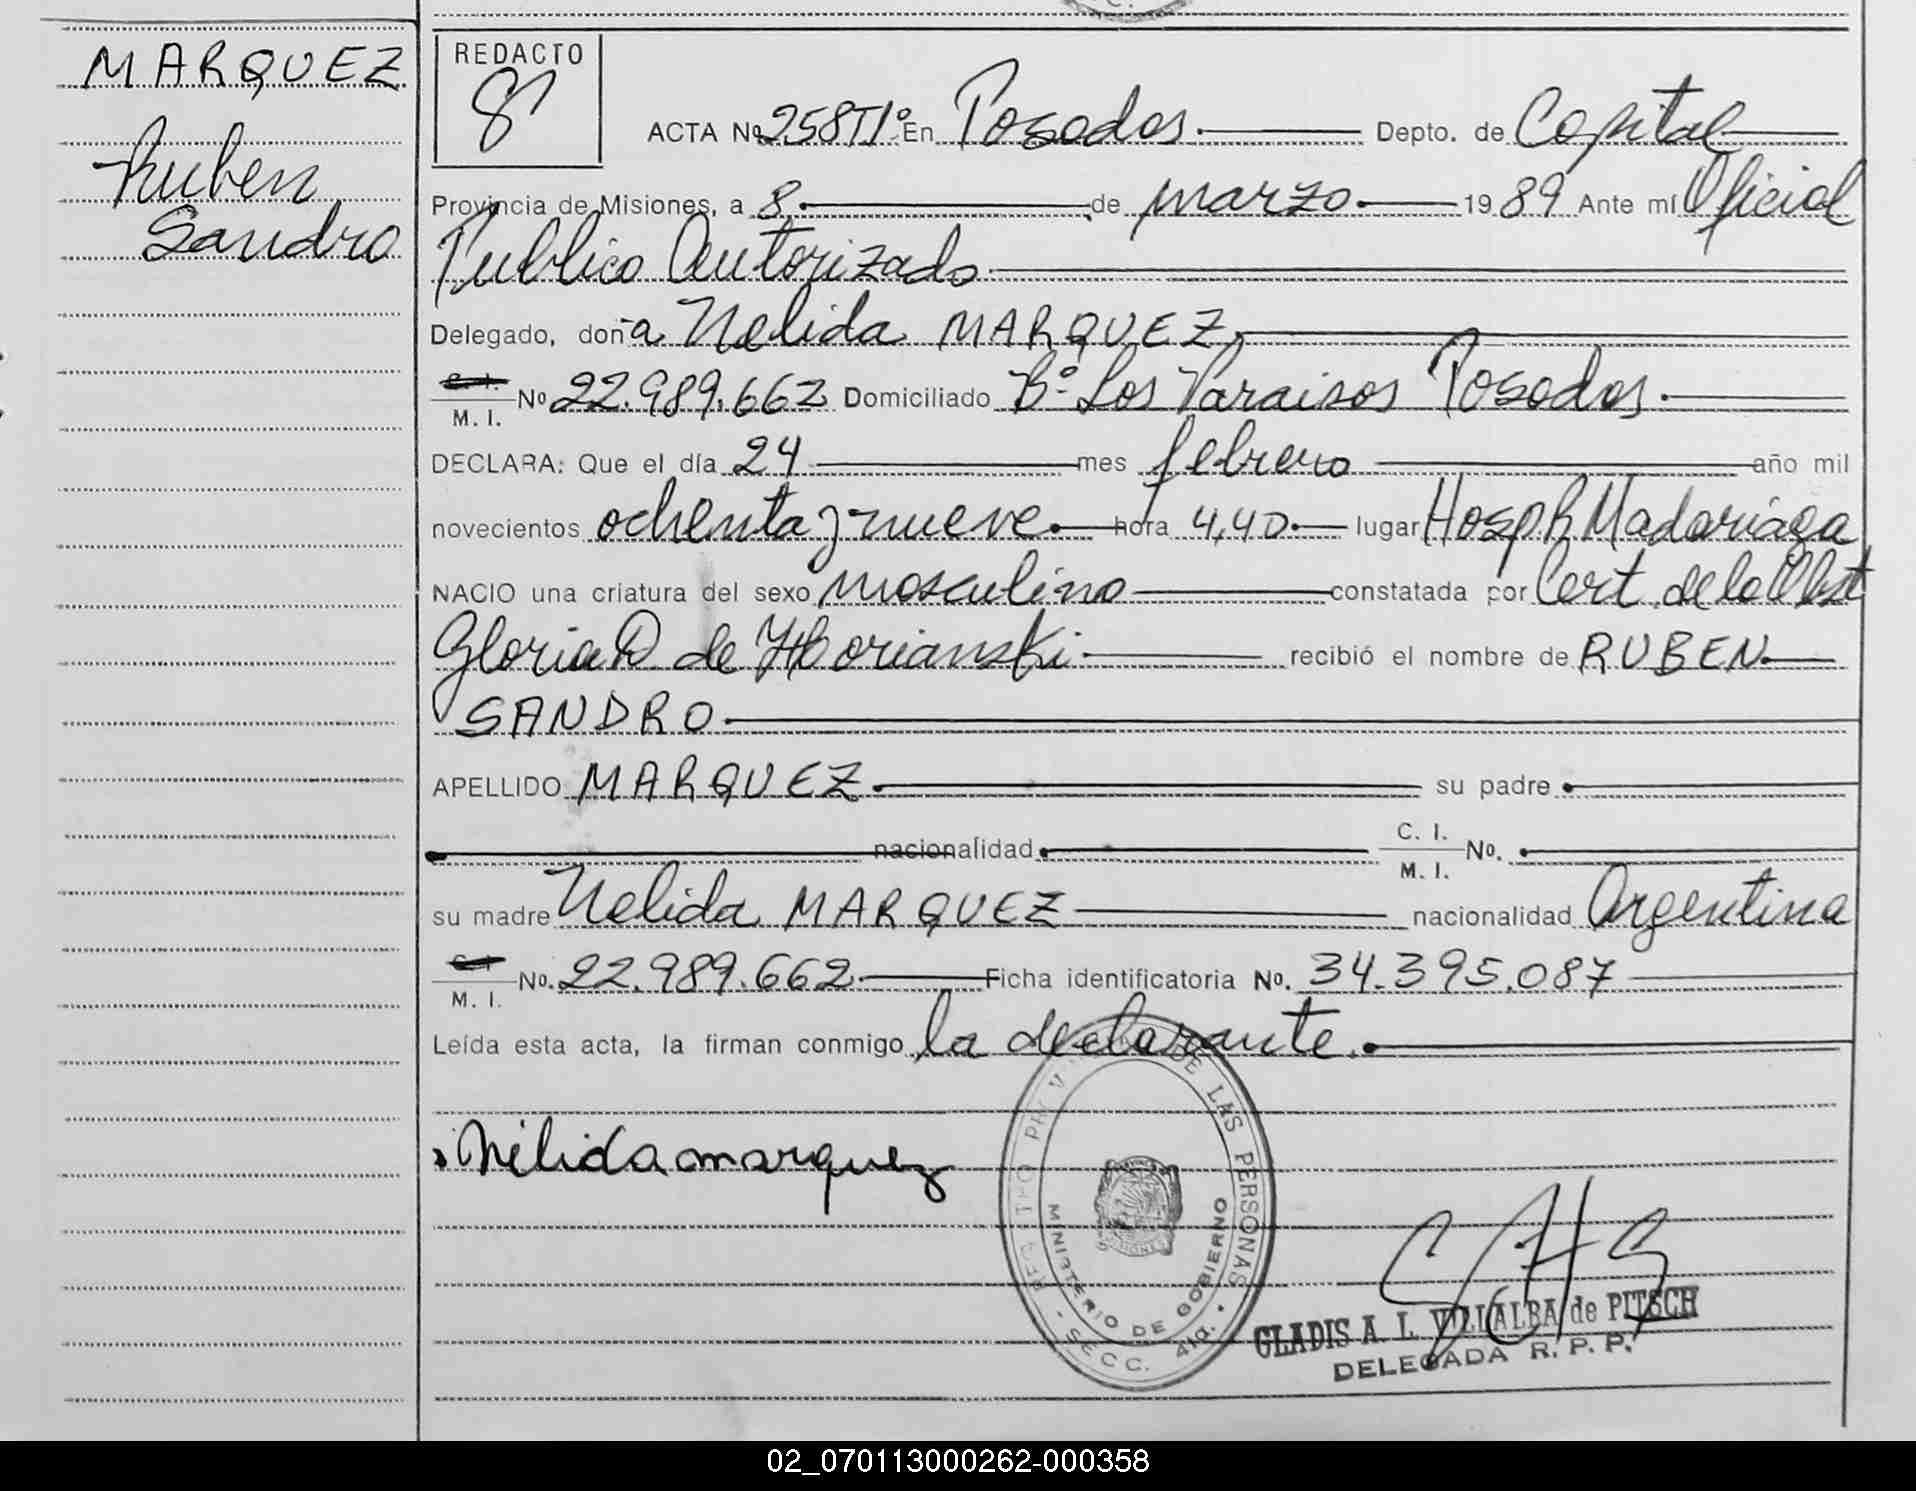 MARQUEZ
Ruben
Sandro
REDACTO
8
ACTA Nº 258 T1º En Posadas Depto. de Capital
Provincia de Misiones, a 8 de marzo 1989 Ante mí Oficial
Publico Autorizado
Delegado, doña Nelida MARQUEZ
M. I. Nº 22.989.662 Domiciliado Bº Los Paraisos Posadas
DECLARA: Que el día 24 mes febrero año mil
novecientos ochenta y nueve hora 4,40 lugar Hosp. R Madariaga
NACIO una criatura del sexo masculino constatada por Cert. de la Obst
Gloria D de recibió el nombre de RUBEN
SANDRO
APELLIDO MARQUEZ su padre
nacionalidad C. I. M. I. No.
su madre Nelida MARQUEZ nacionalidad Argentina
M. I. No. 22.989.662 Ficha identificatoria No. 34.395.087
Leída esta acta, la firman conmigo la declarante.
Nélida marquez
DE LAS PERSONAS
MINISTERIO DE GOBIERNO
SECC. 4ta.
MISIONES
GLADIS A. L. VILLALBA de PITSCH
DELEGADA R. P. P.
02_070113000262-000358